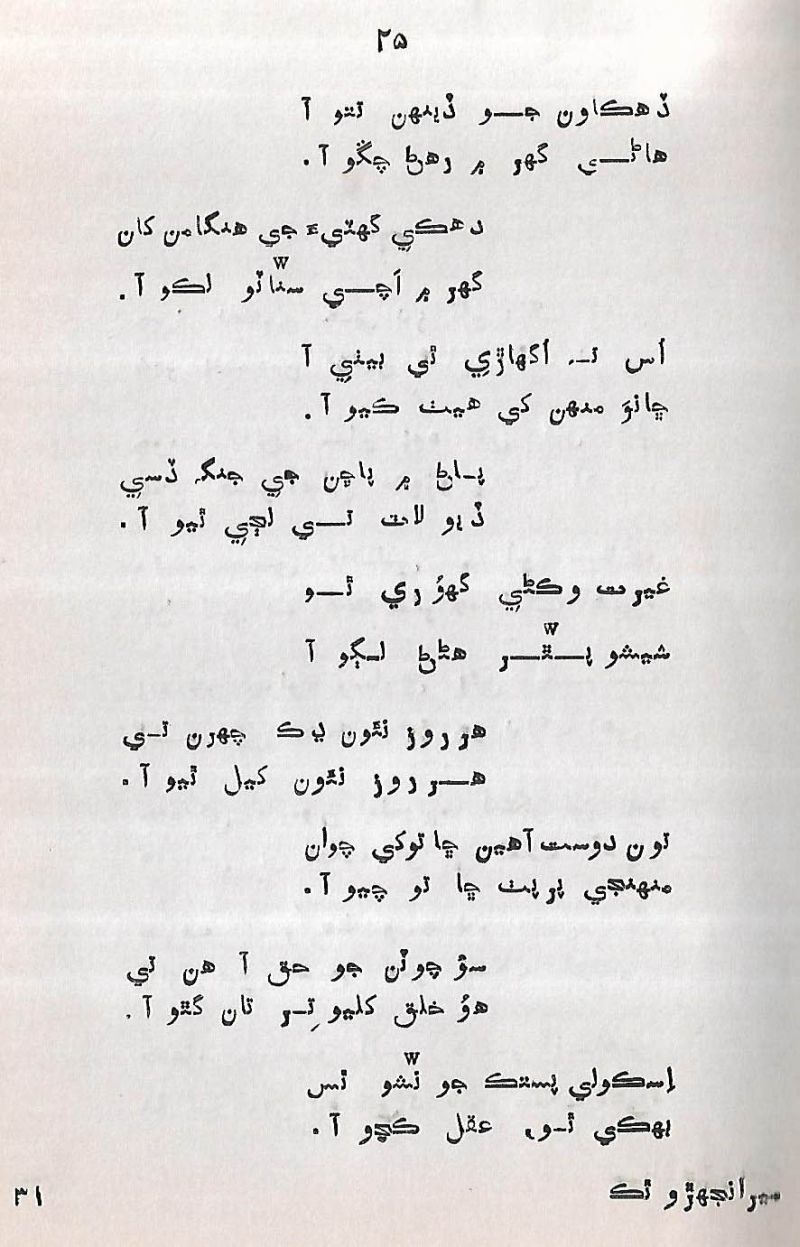 ۲۵
ڏهڪاون جو ڏينهن تتو آ
هاڻي گهر ۾ رهڻ چڱو آ.
دهڪي گهٽيءَ جي هنگامن کان
گهر ۾ اَچي سناٽو لڪو آ.
اُس تہ اُگهاڙي ٿي بيٺي آ
ڇانوَ منهن کي هيٺ ڪيو آ.
پاڻ ۾ پاڇن جي جنگہ ڏسي
ڏيو لاٽ تي لڇي ٿيو آ.
غيرت وڪڻي گهوُري ٿو
شيشو پٿر هڻڻ لڳو آ
هر روز نئون ڍڪ چهرن تي
هر روز نئون کيل ٿيو آ.
تون دوست آهين ڇا توکي چوان
منهنجي پرپٺ ڇا تو چيو آ.
سؤ چوٽن جو حق آ هن تي
هوُ خلق کليو تِر تان گٿو آ.
اِسڪولي پستڪ جو نشو ٿس
بهڪي ٿو، عقل ڪچو آ.
رانجهڙو ٿڪ
۳۱